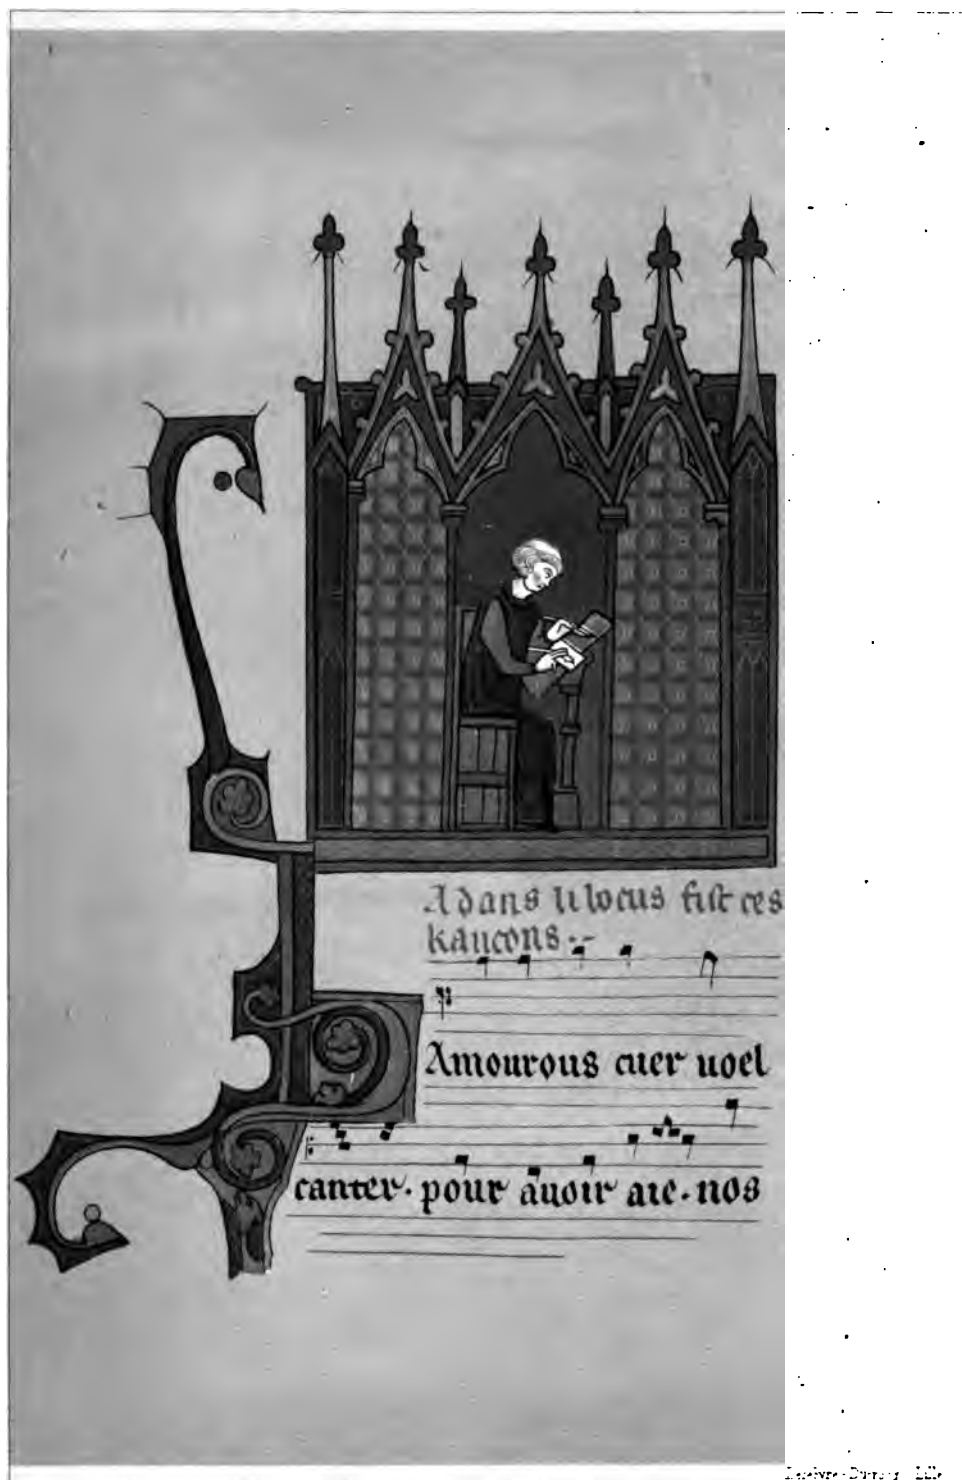 Adans li bocus fist ces
kancons :~
Amourous cuer uoel
canter · pour auoir aie · nos
Lille